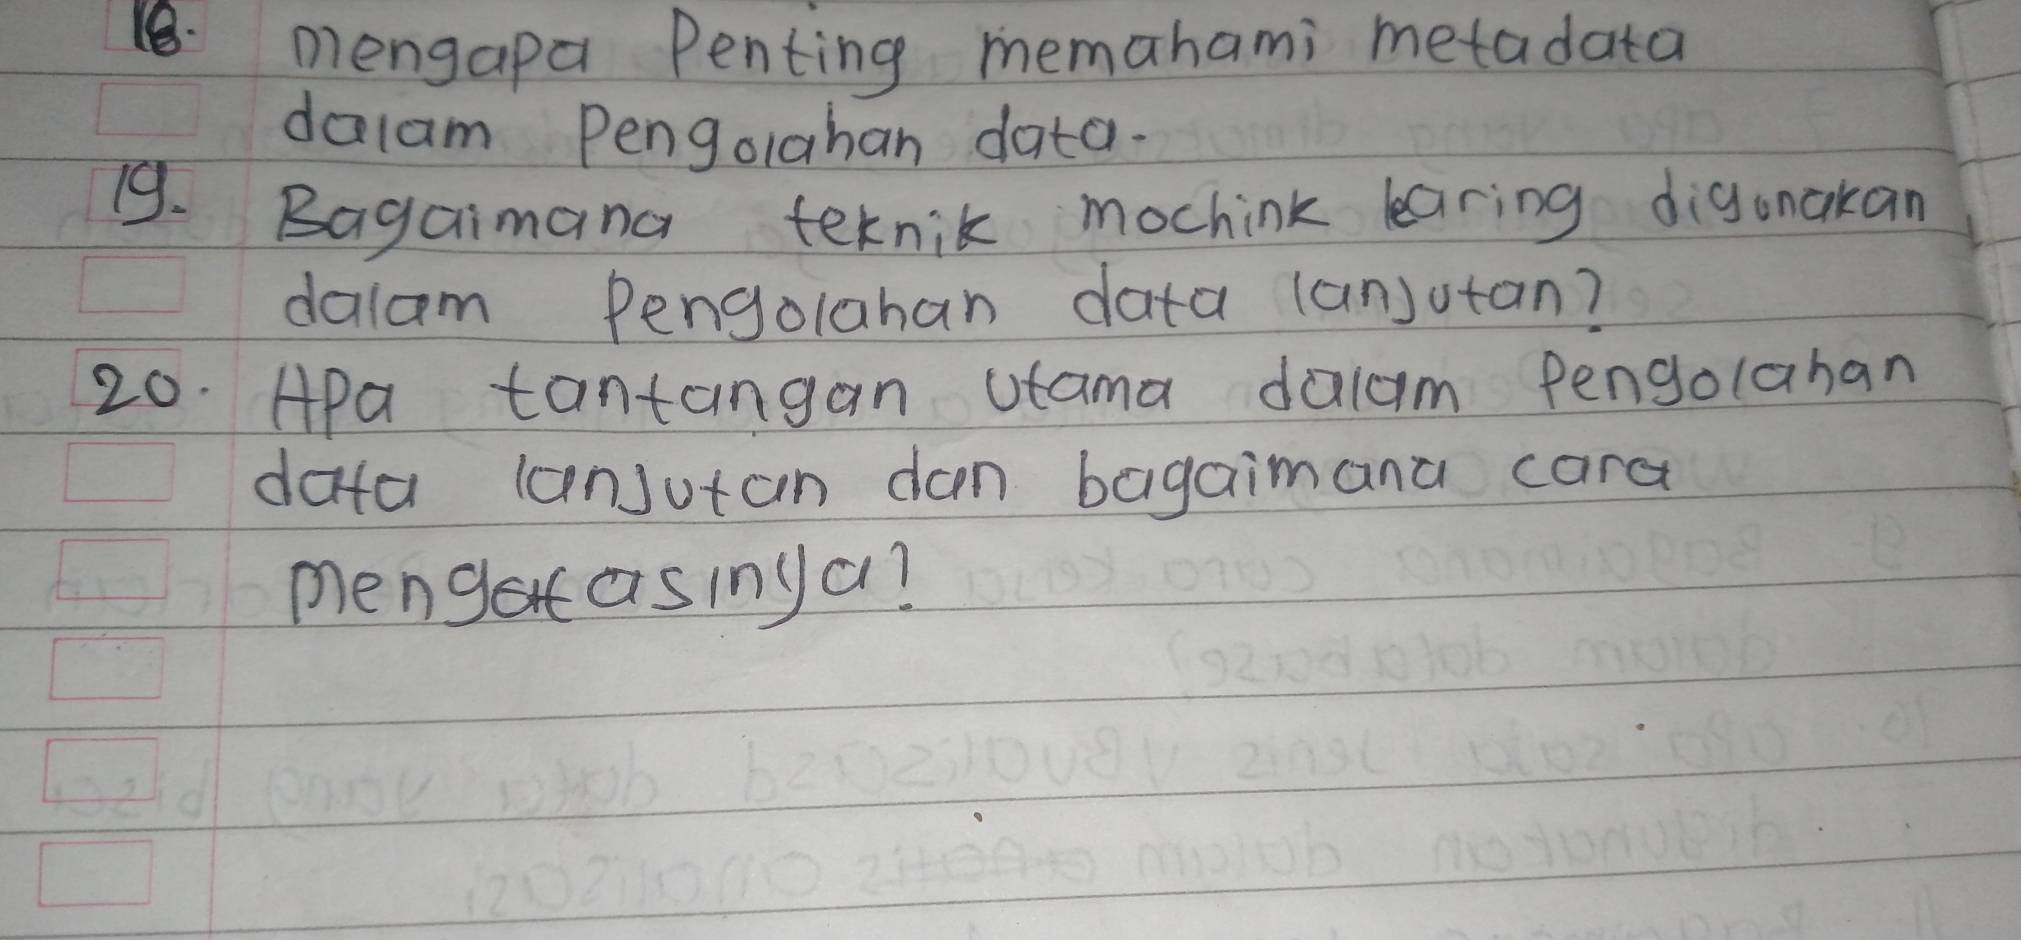 18. mengapa Penting memahami metadata
dalam Pengolahan data.
19. Bagaimana teknik mochink learing digunakan
dalam Pengolahan data lanjutan?
20. Apa tantangan utama dalam Pengolahan
data lanjutan dan bagaimana cara
mengatasinya?